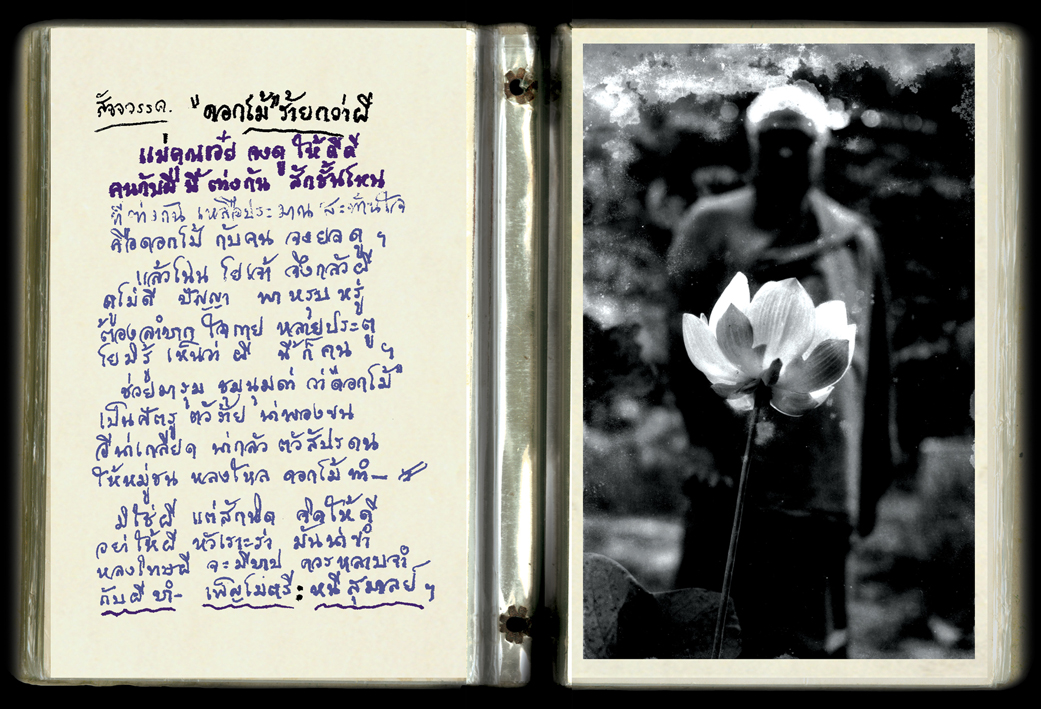 สัจจวรรค. "ดอกไม้" ร้ายกว่าผี
แม่คุณเอ๋ย จงดู ให้ดีดี
คนกับผี นี้ ต่างกัน สักชั้นไหน
ที่ต่างกัน เหลือประมาณ
คือดอกไม้ กับคน จงยลดู ฯ
แล้วไฉน โยเจ้า จึงกลัวผี
ดูไม่ดี ปัญญา พา หรุบ หรู่
ต้องลำบาก ใจกาย หลายประตู
โยมิรู้ เห็นว่า ผี นี้ ก็ คน ฯ
ช่วยมารุม ชุมนุมด่า ว่า "ดอกไม้"
เป็นศัตรู ตัวภัย น่าพองขน
ผีน่าเกลียด น่ากลัว ตัวสัปรดน
ให้หมู่ชน หลงใหล ดอกไม้ ทำ
มิใช่ผี แต่สักนิด คิดให้ดี
อย่าให้ผี หัวเราะร่า มันน่าขำ
หลงโทษผี จะมีบาป ควรหลาบจำ
กับผี ทำ ไมตรี: หนี สุมาลย์ ฯ